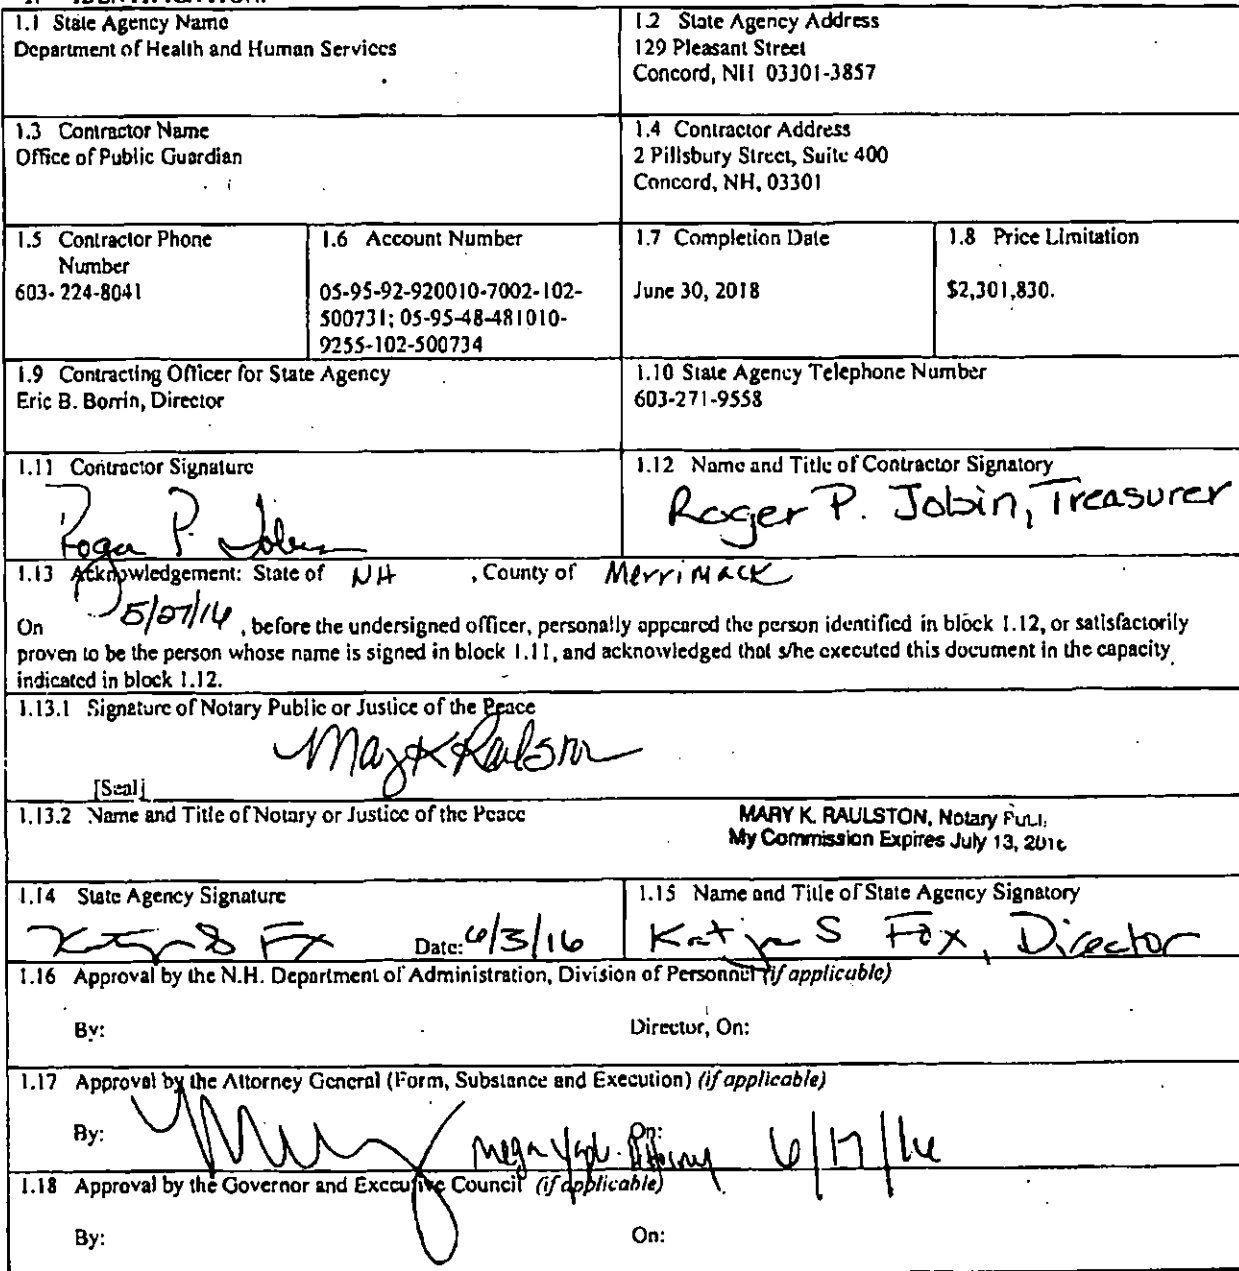 1.1 State Agency Name
Department of Health and Human Services
1.2 State Agency Address
129 Pleasant Street
Concord, NH 03301-3857
1.3 Contractor Name
Office of Public Guardian
1.4 Contractor Address
2 Pillsbury Street, Suite 400
Concord, NH, 03301
1.5 Contractor Phone
Number
603- 224-8041
1.6 Account Number
05-95-92-920010-7002-102-
500731; 05-95-48-481010-
9255-102-500734
1.7 Completion Date
June 30, 2018
1.8 Price Limitation
$2,301,830.
1.9 Contracting Officer for State Agency
Eric B. Borrin, Director
1.10 State Agency Telephone Number
603-271-9558
1.11 Contractor Signature
Roger P. Jobin
1.12 Name and Title of Contractor Signatory
Roger P. Jobin, Treasurer
1.13 Acknowledgement: State of NH , County of Merrimack
On 5/27/16 , before the undersigned officer, personally appeared the person identified in block 1.12, or satisfactorily
proven to be the person whose name is signed in block 1.11, and acknowledged that s/he executed this document in the capacity
indicated in block 1.12.
1.13.1 Signature of Notary Public or Justice of the Peace
Mary K Raulston
[Seal]
1.13.2 Name and Title of Notary or Justice of the Peace
MARY K. RAULSTON, Notary
My Commission Expires July 13,
1.14 State Agency Signature
Date: 6/3/16
1.15 Name and Title of State Agency Signatory
Katja S Fox, Director
1.16 Approval by the N.H. Department of Administration, Division of Personnel (if applicable)
By:
Director, On:
1.17 Approval by the Attorney General (Form, Substance and Execution) (if applicable)
By:
On: 6/17/16
1.18 Approval by the Governor and Executive Council (if applicable)
By:
On: